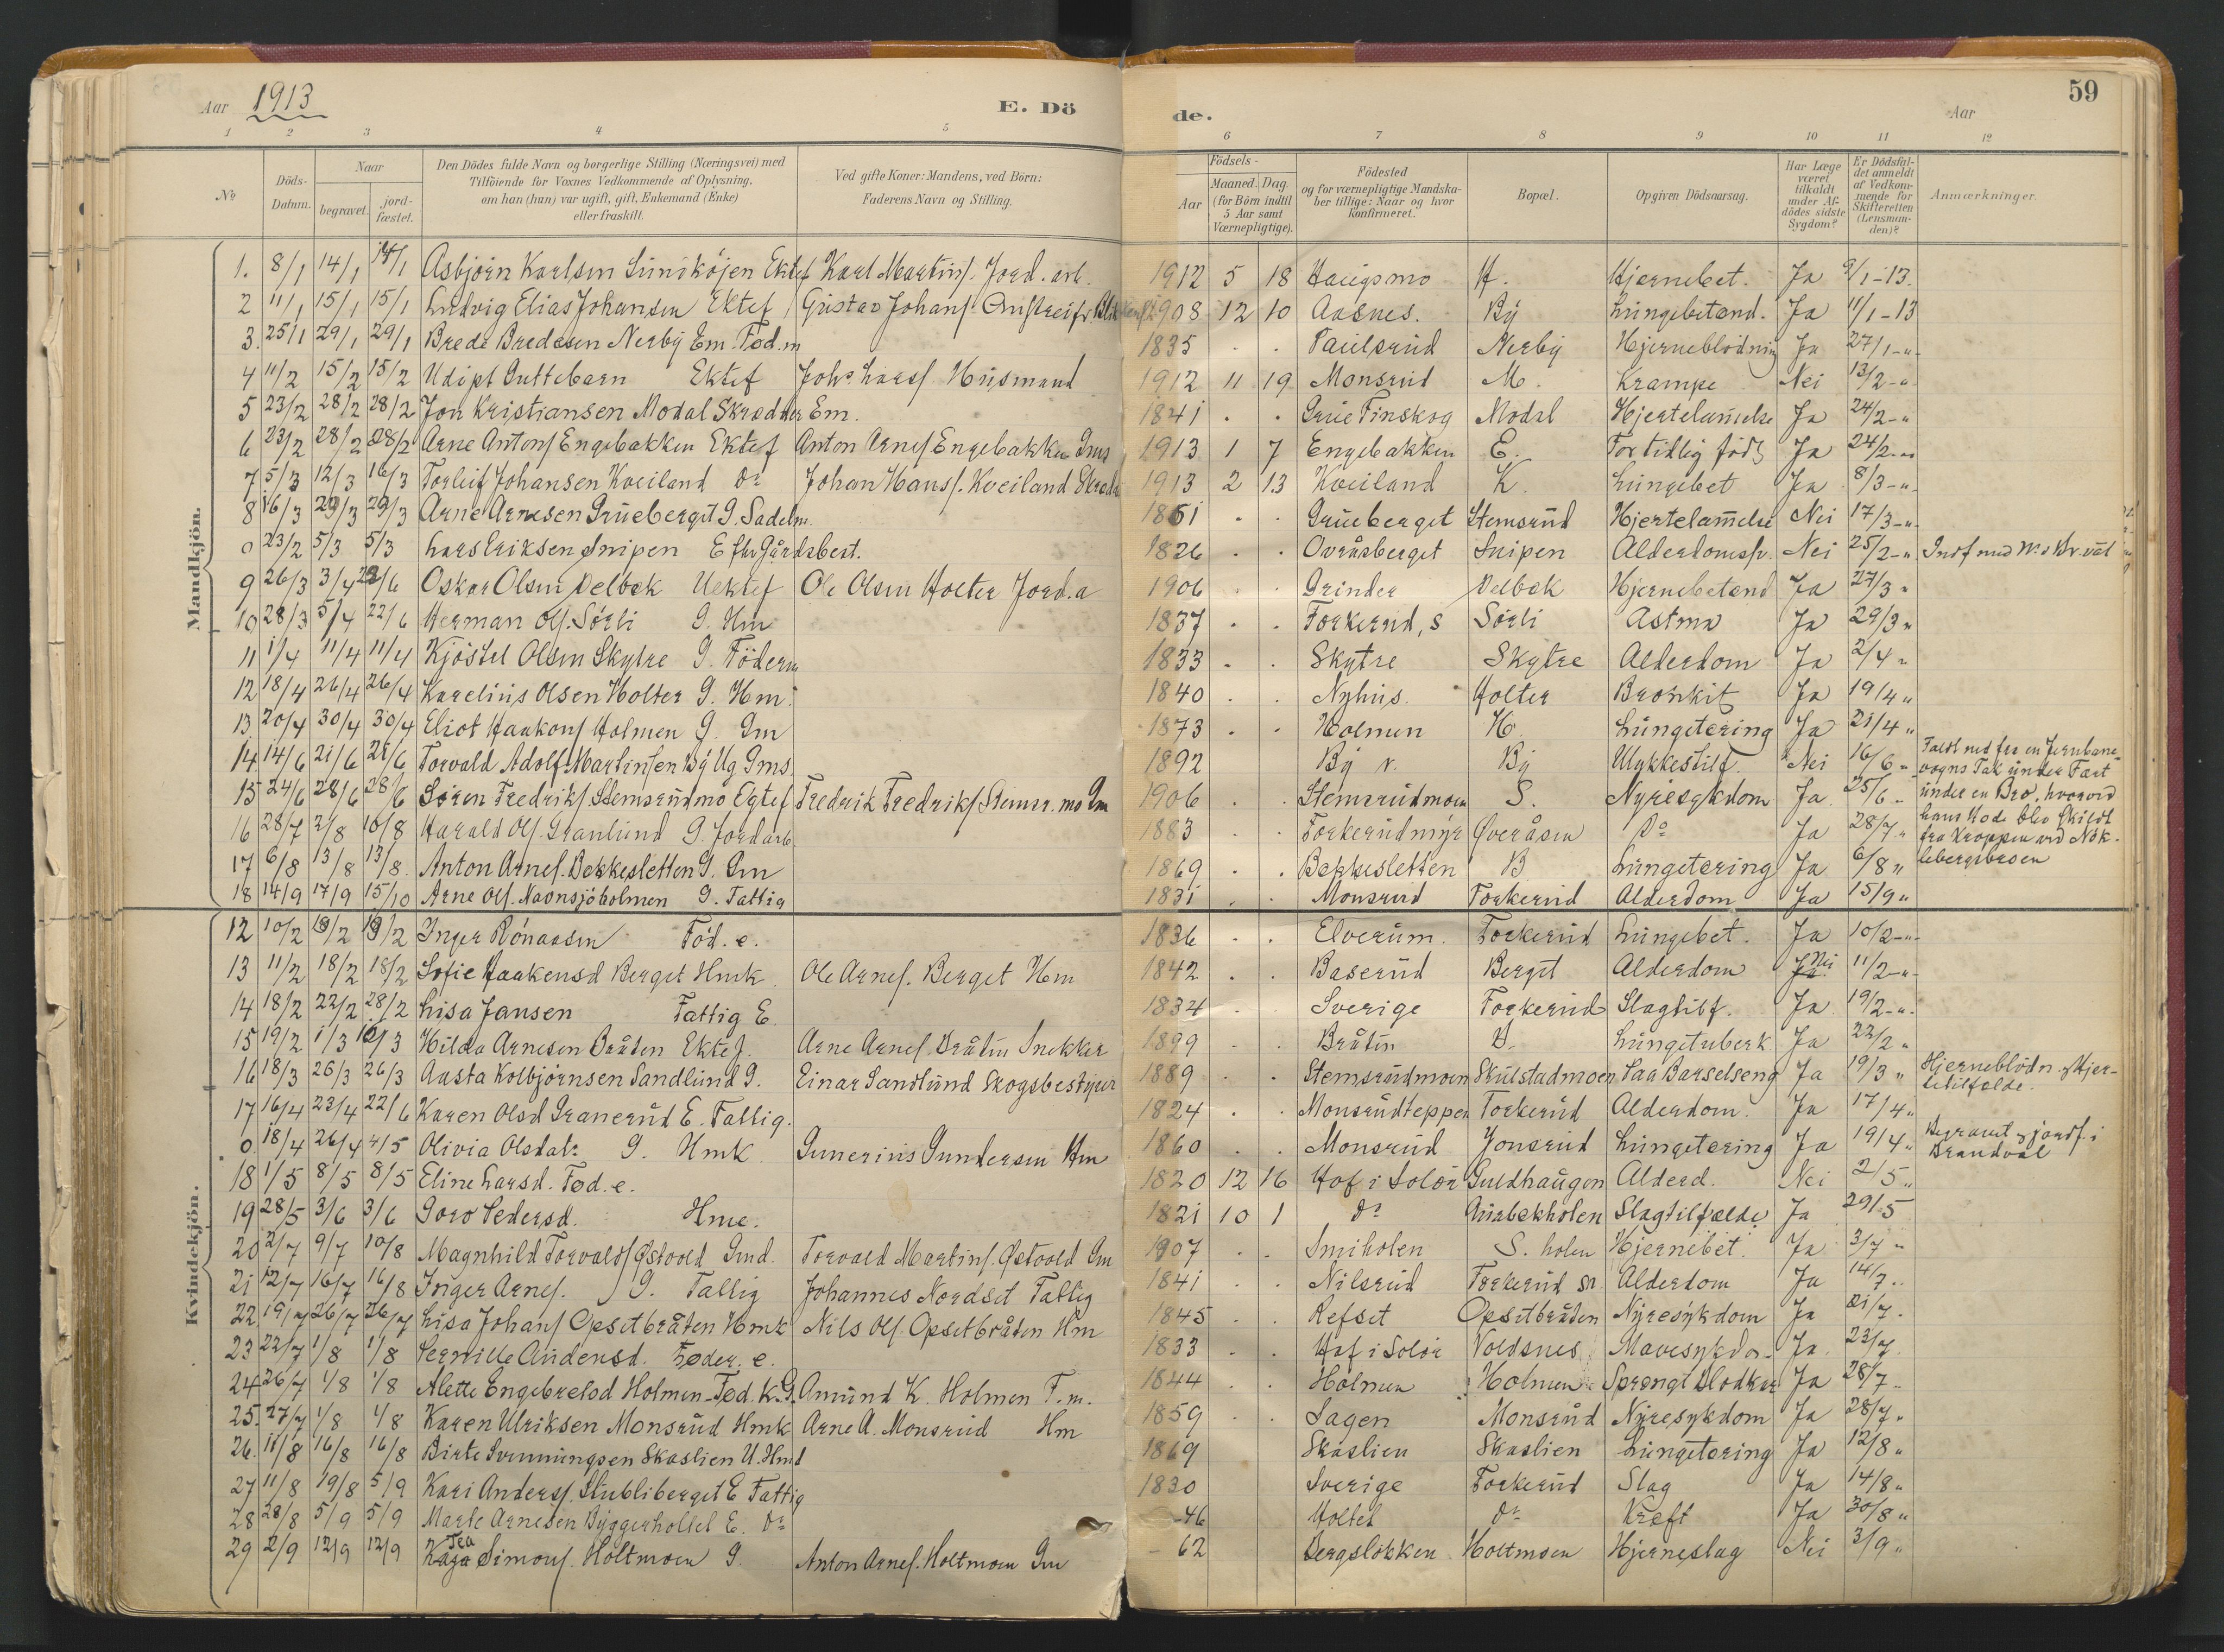 Aar 1913 E. Dö de. Aar 59
1 2 3 4 5 6 7 8 9 10 11 12
No Döds-Datum. Naar begravet. jordfæstet. Den Dödes fulde Navn og borgerlige Stilling (Næringsvei) med Tilföiende for Voxnes Vedkommende af Oplysning. om han (hun) var ugift, gift, Enkemand (Enke) eller fraskilt. Ved gifte Koner: Mandens, ved Börn: Faderens Navn og Stilling. Födsels- Aar Maaned. Dag. (for Börn indtil 5 Aar samt Værnepligtige). Födested og for værnepligtige Mandskaber tillige: Naar og hvor konfirmeret. Bopæl. Opgiven Dödsaarsag. Har Læge været tilkaldt under Afdödes sidste Sygdom? Er Dödsfaldet anmeldt af Vedkommende for Skifteretten (Lensmanden)? Anmærkninger.
Mandkjön.
1. 8/1 14/1 14/1 Asbjörn Karlsen Ektef Karl Martins. Jord. arb. 1912 5 18 Haugsmo H. Hjernebet. Ja 9/1-13.
2 11/1 15/1 15/1 Ludvig Elias Johansen Ektef Gustav Johans. 1908 12 10 Aasnes. By Lungebetænd. Ja 11/1-13
3. 25/1 29/1 29/1 Brede Bredesen Nerby Em. Fød.m 1835 . . Paulsrud Nerby Hjerneblödning Ja 27/1-"-
4 11/2 15/2 15/2 Udöpt Guttebarn Ektef Johs Larss Husmand 1912 11 19 Monsrud M. Krampe Nei 13/2-"
5 23/2 28/2 28/2 Jon Kristiansen Modal Skrædder Em. 1841 . . Grue Finskog Modal Hjertelammelse Ja 24/2-"
6 23/2 28/2 28/2 Arne Antons Engebakken Ektef Anton Arnes Engebakken Gms 1913 1 7 Engebakken E. For tidlig född Ja 24/2-"
7 5/3 12/3 16/3 Torleif Johansen Kveiland Do Johan Hanss. Kveiland 1913 2 13 Kveiland K. Lungebet Ja 8/3-"-
8 16/3 29/3 29/3 Arne Arnesen Grueberget G. Sadelm. 1851 . . Grueberget Stemsrud Hjertelammelse Nei 17/3-"-
0 23/2 5/3 5/3 Lars Eriksen Snipen E fhv Gårdsbest. 1826 . . Overåsberget Snipen Alderdomssv. Nei 25/2-"
9 26/3 3/4 22/6 Oskar Olsen Velbek Uektef Ole Olsen Holter Jord.a 1906 . . Grinder Velbæk Hjernebetænd Ja 27/3 "
10 28/3 5/4 22/6 Herman Ols. Sørli G. Hm 1837 . . Torkerud, s Sörli Astma Ja 29/3 "
11 1/4 11/4 11/4 Kjöstel Olsen Skytre G. Föderm 1833 . . Skytre Skytre Alderdom Ja 2/4 "
12 18/4 26/4 26/4 Karelius Olsen Holter G. Hm. 1840 . . Nyhus. Holter Bronkit Ja 19/4 "
13 20/4 30/4 30/4 Eliot Haakons Holmen G. Gm 1873 . . Holmen H. Lungetæring Ja 21/4 "
14 14/6 21/6 21/6 Torvald Adolf Martinsen By Ug Gms. 1892 By v. By Ulykkestilf. Nei 16/6 " Faldt ned fra en Jernbane-
vogns Tak under Fart
under en Bro, hvorved
hans Hode blev skildt
fra Kroppen
15 24/6 28/6 28/6 Sören Fredriks Stemsrudmo Egtef Fredrik Fredriks Stemsr. mo Gm 1906 . . Stemsrudmoen S. Nyresygdom Ja 25/6 "
16 28/7 2/8 10/8 Harald Ols. Granlund G. Jordarb. 1883 . . Torkerudmyr Overåsen Do Ja 28/7 "
17 6/8 13/8 13/8 Anton Arnes. Bekkesletten G. Gm 1869 . . Bekkesletten B Lungetæring Ja 6/8 "
18 14/9 17/9 15/10 Arne Ols. Navnsjöholmen G. Fattig 1831 . . Monsrud Torkerud Alderdom Ja 15/9 "
Kvindekjön.
12 10/2 19/2 19/2 Inger Rönaasen Föd. e. 1836 . . Elverum. Torkerud Lungebet. Ja 10/2-"-
13 11/2 18/2 18/2 Sofie Haakensd Berget Hmk Ole Arnes. Berget Hm 1842 . . Baserud Berget Alderdom Nei 11/2-"-
14 18/2 22/2 28/2 Lisa Jansen Fattig E. 1834 . . Sverige Torkerud Slagtilf. Ja 19/2-"-
15 19/2 1/3 12/3 Hilda Arnesen Bråten Ektef. Arne Arnes. Bråten Snekker 1899 . . Bråten B. Lungetuberk Ja 22/2 "
16 18/3 26/3 26/3 Aasta Kolbjørnsen Sandlund G. Einar Sandlund Skogsbestyrer 1889 . . Stemsrudmoen Skulstadmoen Paa Barselseng Ja 19/3 " Hjerneblödn. Hjer-
tetilfælde.
17 16/4 23/4 22/6 Karen Olsd Granerud E. Fattig. 1824 . . Monsrudteppen Torkerud Alderdom. Ja 17/4 "
0 18/4 26/4 4/5 Olivia Olsdatr G. Hmk Gunerius Gundersen Hm 1860 . . Monsrud Jonsrud Lungetæring Ja 19/4 " Begravet og jordf. i
Brandval
18 1/5 8/5 8/5 Eline Larsd. Fød. e. 1820 12 16 Hof i Solör Guldhaugen Alderd. Nei 2/5 "
19 28/5 3/6 3/6 Goro Pedersd. Hme. 1821 10 1 Do Aurbekholen Slagtilfælde Ja 29/5
20 2/7 9/7 10/8 Magnhild Torvalds Østvold Gmd. Torvald Martins. Østvold Gm 1907 . . Smiholen S. holen Hjernebet. Ja 3/7 "
21 12/7 16/7 16/8 Inger Arnes. G. Fattig Johannes Nordset Fattig 1841 . . Nilsrud Torkerud Alderdom Ja 14/7 "
22 19/7 26/7 26/7 Lisa Johans Opsetbråten Hmk Nils Ols. Opsetbråten Hm 1845 . . Refset Opsetbråten Nyresykdom Ja 21/7 "
23 22/7 1/8 1/8 Pernille Audensd. Föder. e. 1833 . . Hof i Solör Voldsnes Mavesykdo- Ja 23/7
24 26/7 1/8 1/8 Alette Engebretsd Holmen Fød. k. G. Amund K. Holmen F.m. 1844 . . Holmen Holmen Sprængt Blodkar Ja 28/7 "
25. 27/7 1/8 1/8 Karen Ulriksen Monsrud Hmk Arne A. Monsrud Hm 1859 . . Sagen Monsrud Nyresykdom Ja 28/7 "
26. 11/8 16/8 16/8 Birte Svenningsen Skaslien U. Hmd 1869 Skaslien Skaslien Lungetæring Ja 12/8 "
27 11/8 19/8 5/9 Kari Anders. Stubliberget E Fattig 1830 Sverige Torkerud Slag Ja 14/8 "
28 28/8 5/9 5/9 Marte Arnesen Byggerholtet E. Do -46 Holtet Do Kreft Ja 30/8 "
29 2/9 12/9 12/9 Tea Simons. Holtmoen G. Anton Arnes. Holtmoen Gm -62 Bergslökken Holtmoen Hjerneslag Nei 3/9 "